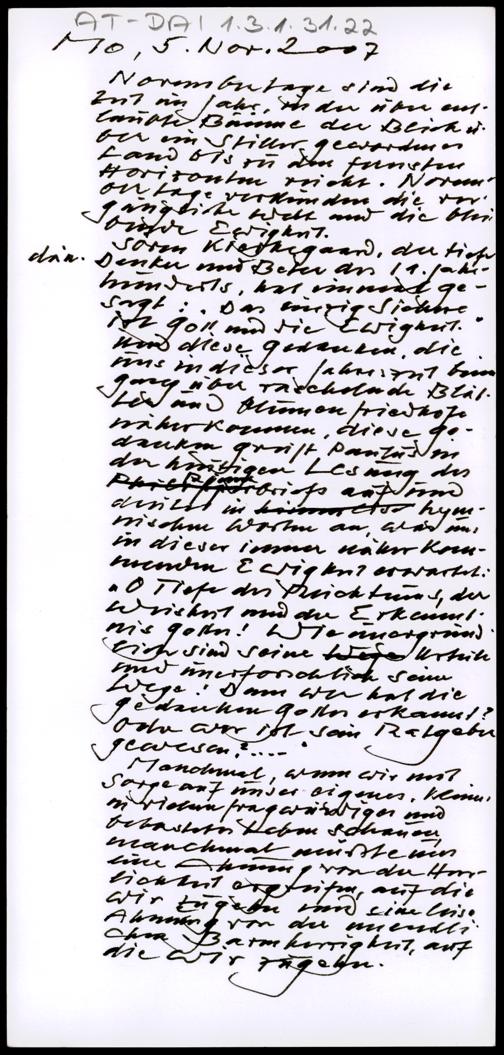 AT-DAI 1.3.1.31.22
Mo, 5. Nov. 2007
Novembertage sind die
Zeit im Jahr, in der über ent-
laubte Bäume der Blick ü-
ber ein stiller gewordenes
Land bis zu den fernsten
Horizonten reicht. Novem-
bertage verkünden die ver-
gängliche Welt und die blei-
bende Ewigkeit.
Sören Kierkegaard, der tiefe
dän. Denker und Beter des 19. Jahr-
hunderts, hat einmal ge-
sagt: "Das einzig Sichere
ist Gott und die Ewigkeit."
Und diese Gedanken, die
uns in dieser Jahreszeit beim
Gang über raschelnde Blät-
ter und Blumenfriedhöfe
näher kommen, diese Ge-
danken greift Paulus in
der heutigen Lesung des
briefs auf und
deutet in hym-
nischen Worten an, was uns
in dieser immer näher kom-
menden Ewigkeit erwartet:
"O Tiefe des Reichtums, der
Weisheit und der Erkennt-
nis Gottes! Wie unergründ-
lich sind seine Wege Urteile
und unerforschlich seine
Wege! Denn wer hat die
Gedanken Gottes erkannt?
Oder wer ist sein Ratgeber
gewesen?...."
Manchmal, wenn wir mit
Sorge auf unser eigenes, kleines
in vielem fragwürdiges und
Leben schauen,
manchmal müsste uns
eine Ahnung von der Herr-
lichkeit ergreifen, auf die
wir zugehn und eine leise
Ahnung von der unendli-
chen Barmherzigkeit, auf
die wir zugehn.